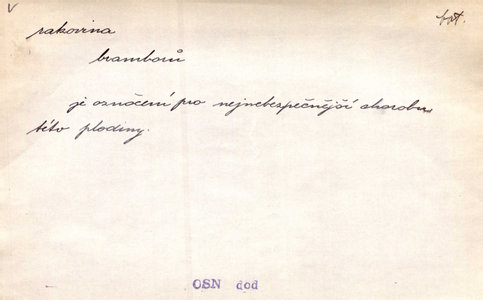 v
bot.
rakovina
bramborů
je označení pro nejnebezpečnější chorobu
této plodiny.
OSN dod